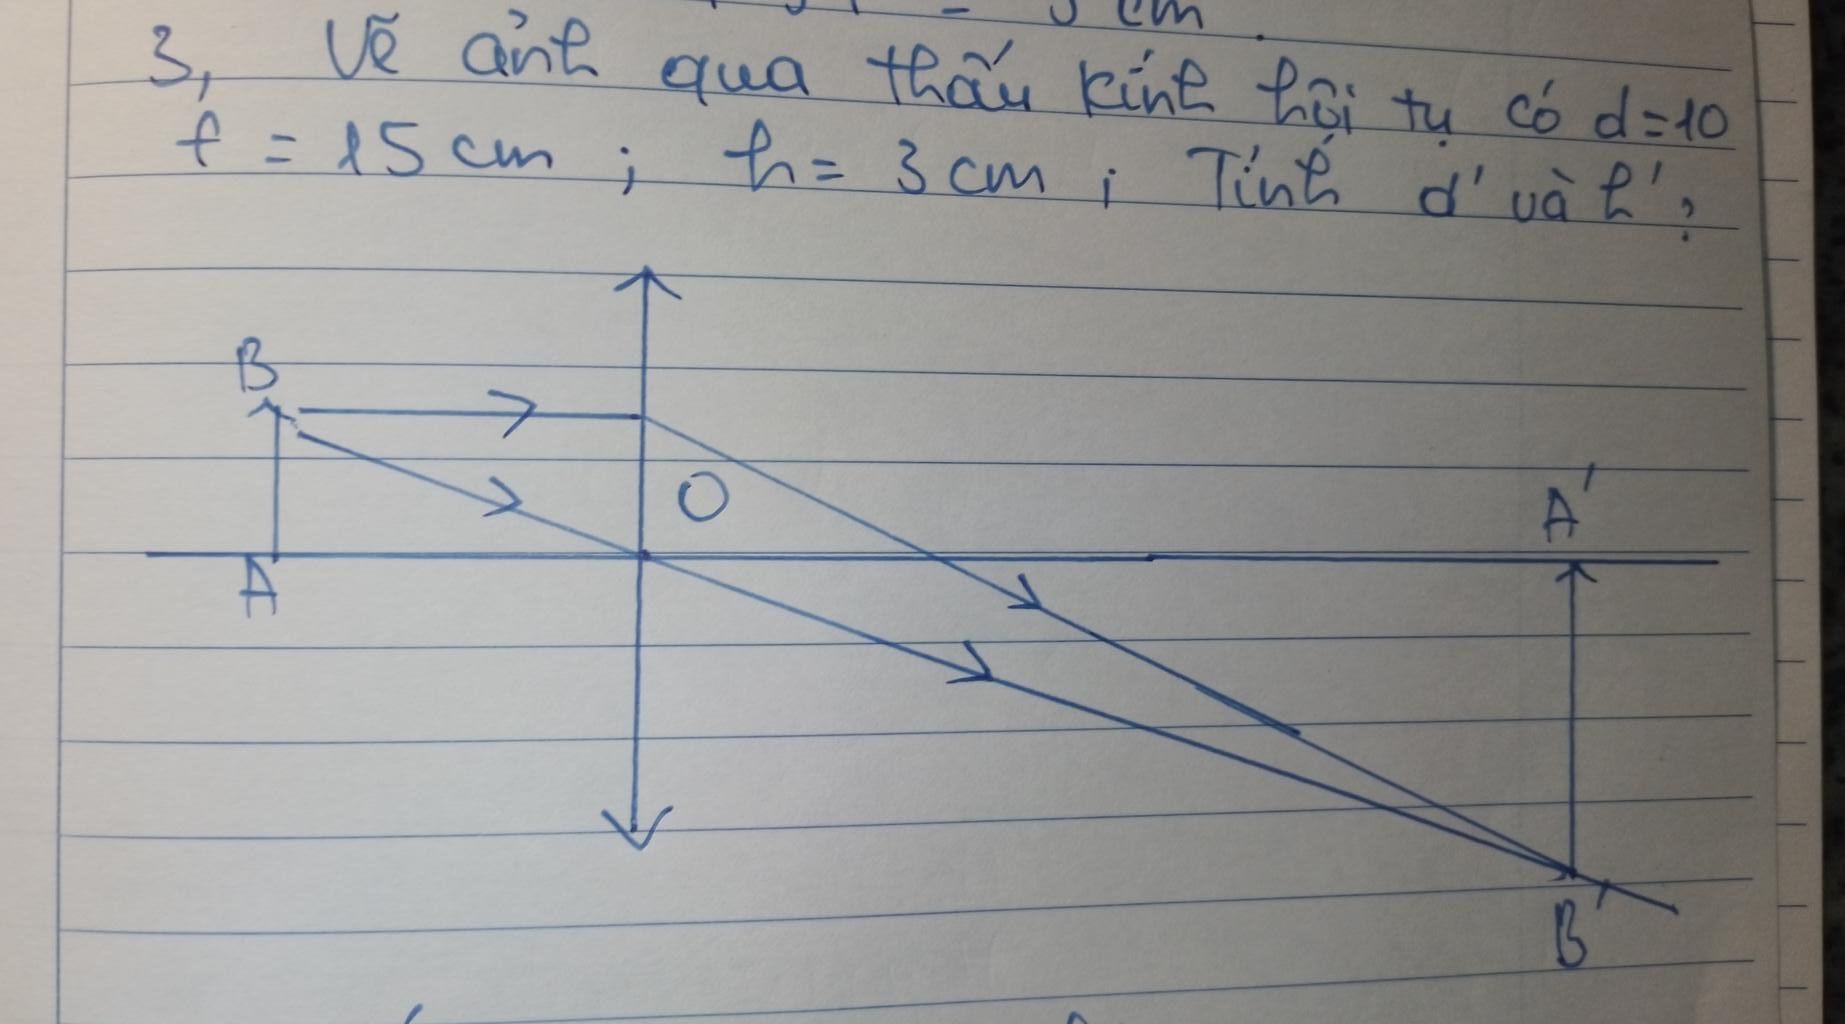 = 3 cm.
3, Vẽ ảnh qua thấu kính hội tụ có d=10
f = 15 cm ; h = 3 cm ; Tính d' và h'?
B
O
A'
A
B'